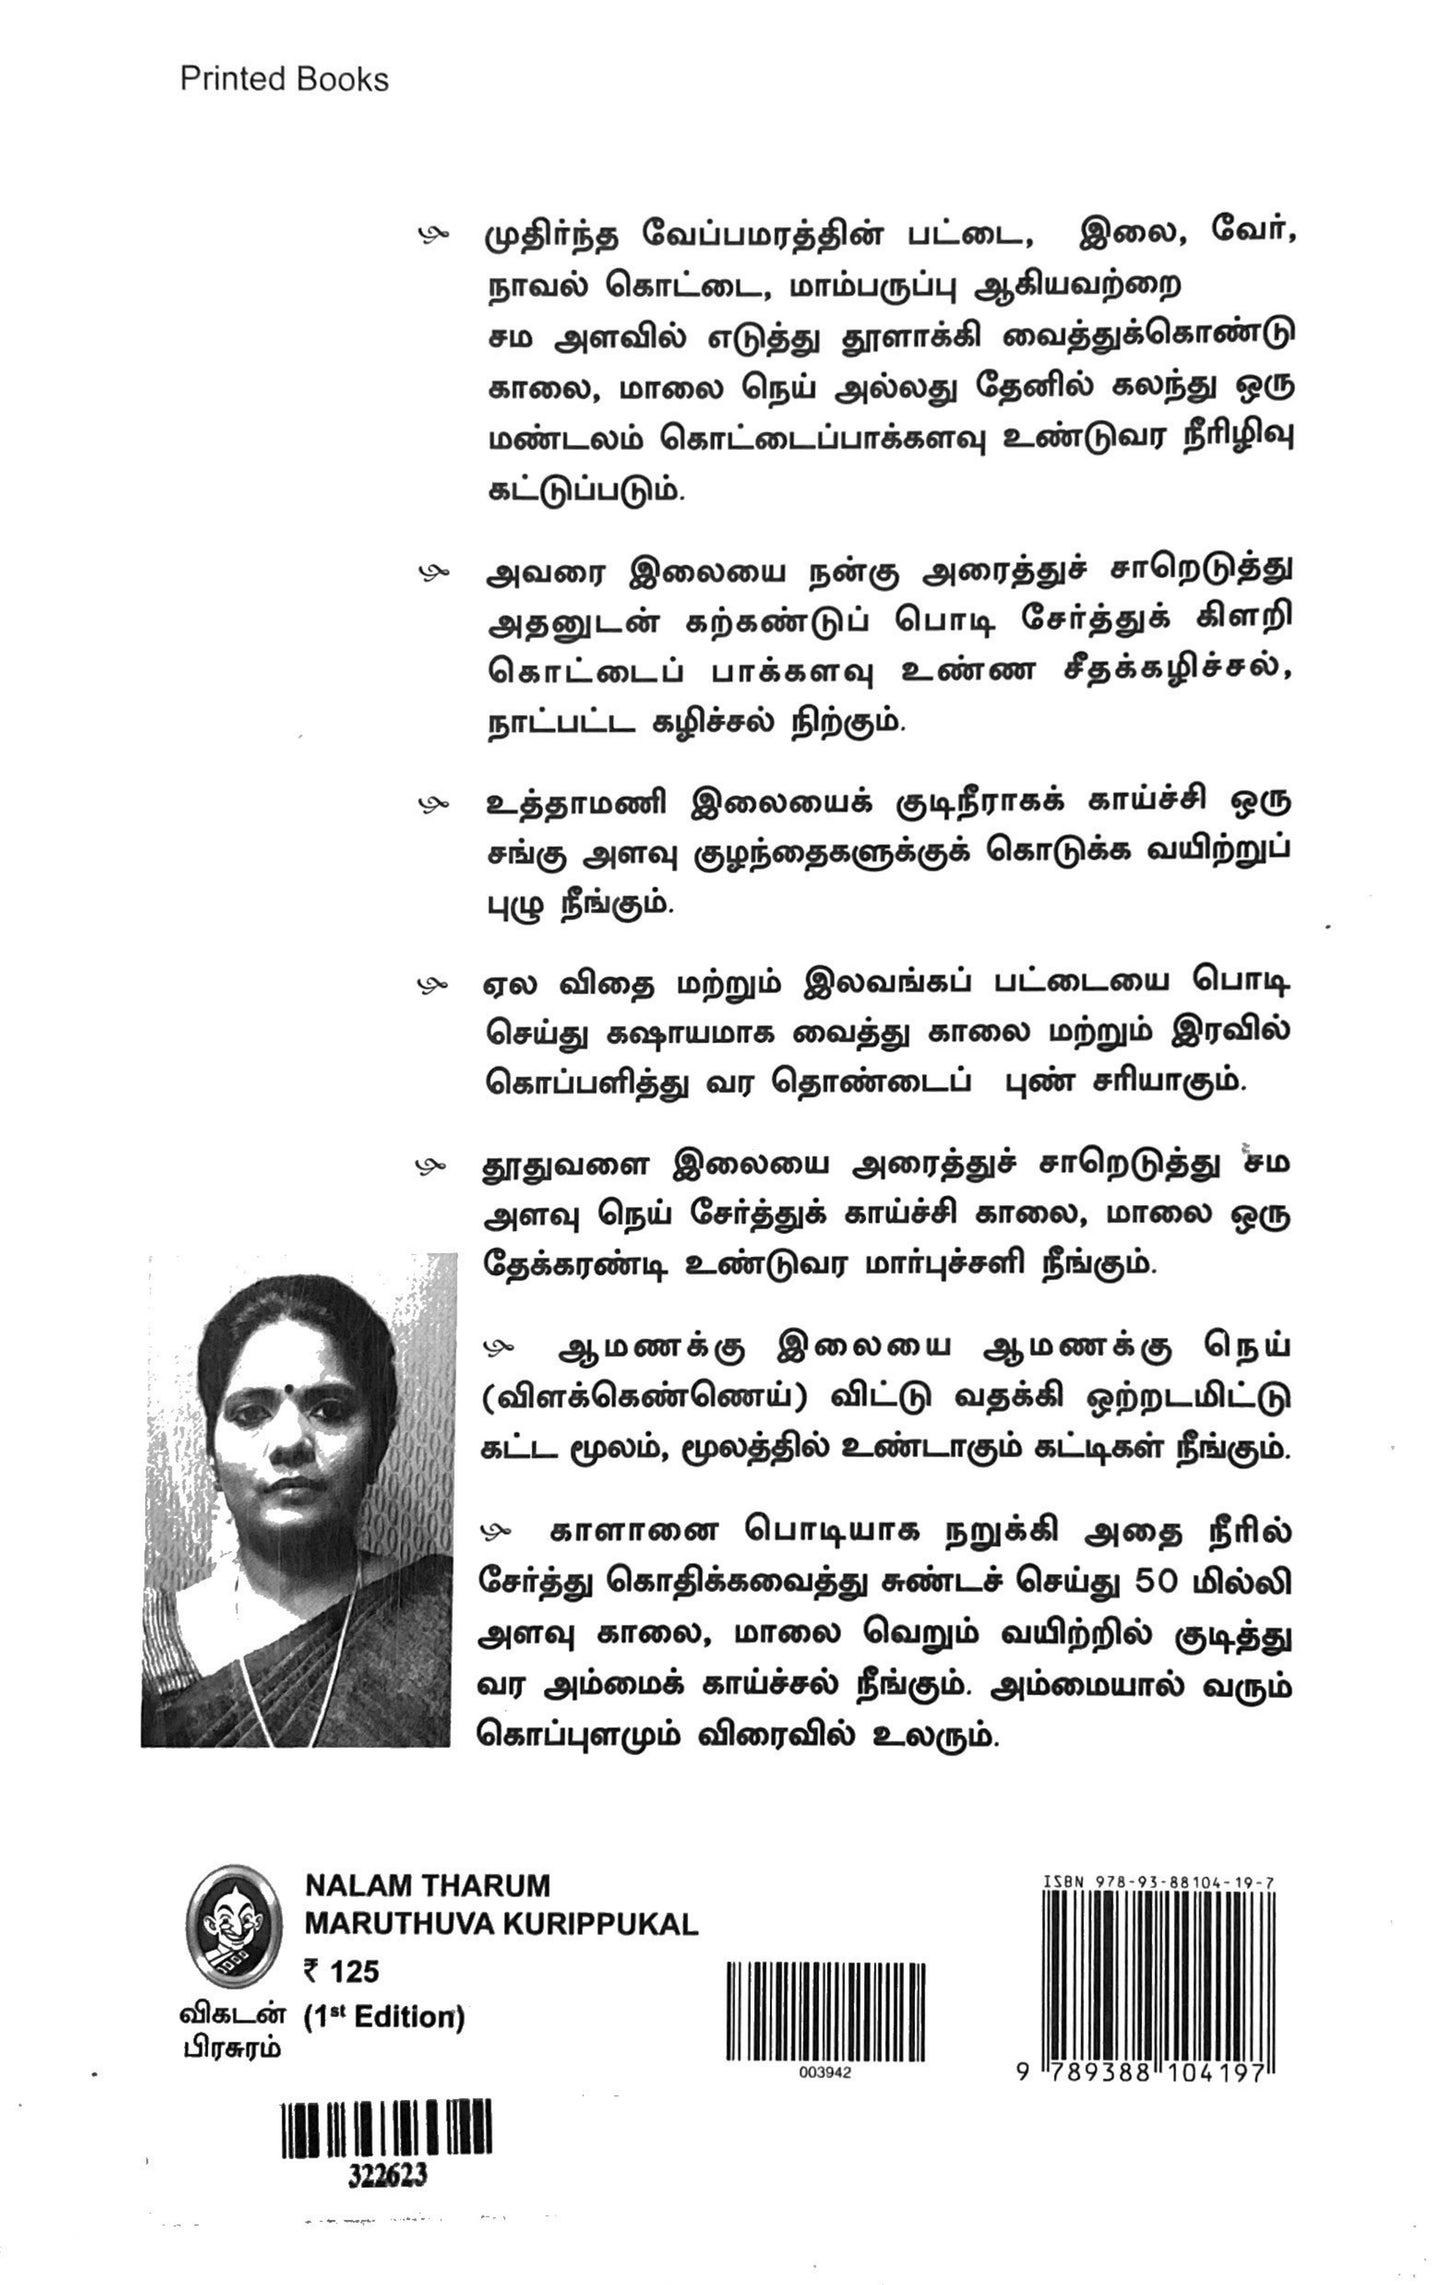 Printed Books
முதிர்ந்த வேப்பமரத்தின் பட்டை, இலை, வேர்,
நாவல் கொட்டை, மாம்பருப்பு ஆகியவற்றை
சம அளவில் எடுத்து தூளாக்கி வைத்துக்கொண்டு
காலை, மாலை நெய் அல்லது தேனில் கலந்து ஒரு
மண்டலம் கொட்டைப்பாக்களவு உண்டுவர நீரிழிவு
கட்டுப்படும்.
அவரை இலையை நன்கு அரைத்துச் சாறெடுத்து
அதனுடன் கற்கண்டுப் பொடி சேர்த்துக் கிளறி
கொட்டைப் பாக்களவு உண்ண சீதக்கழிச்சல்,
நாட்பட்ட கழிச்சல் நிற்கும்.
உத்தாமணி இலையைக் குடிநீராகக் காய்ச்சி ஒரு
சங்கு அளவு குழந்தைகளுக்குக் கொடுக்க வயிற்றுப்
புழு நீங்கும்.
ஏல விதை மற்றும் இலவங்கப் பட்டையை பொடி
செய்து கஷாயமாக வைத்து காலை மற்றும் இரவில்
கொப்பளித்து வர தொண்டைப் புண் சரியாகும்.
தூதுவளை இலையை அரைத்துச் சாறெடுத்து சம
அளவு நெய் சேர்த்துக் காய்ச்சி காலை, மாலை ஒரு
தேக்கரண்டி உண்டுவர மார்புச்சளி நீங்கும்.
ஆமணக்கு இலையை ஆமணக்கு நெய்
(விளக்கெண்ணெய்) விட்டு வதக்கி ஒற்றடமிட்டு
கட்ட மூலம், மூலத்தில் உண்டாகும் கட்டிகள் நீங்கும்.
காளானை பொடியாக நறுக்கி அதை நீரில்
சேர்த்து கொதிக்கவைத்து சுண்டச் செய்து 50 மில்லி
அளவு காலை, மாலை வெறும் வயிற்றில் குடித்து
வர அம்மைக் காய்ச்சல் நீங்கும். அம்மையால் வரும்
கொப்புளமும் விரைவில் உலரும்.
NALAM THARUM
MARUTHUVA KURIPPUKAL
₹ 125
(1st Edition)
விகடன்
பிரசுரம்
003942
ISBN 978-93-88104-19-7
9 789388 104197
322623